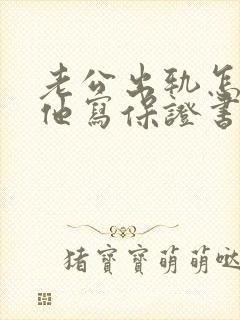 老公出轨怎
他寫保證書
猪寶寶萌萌哒